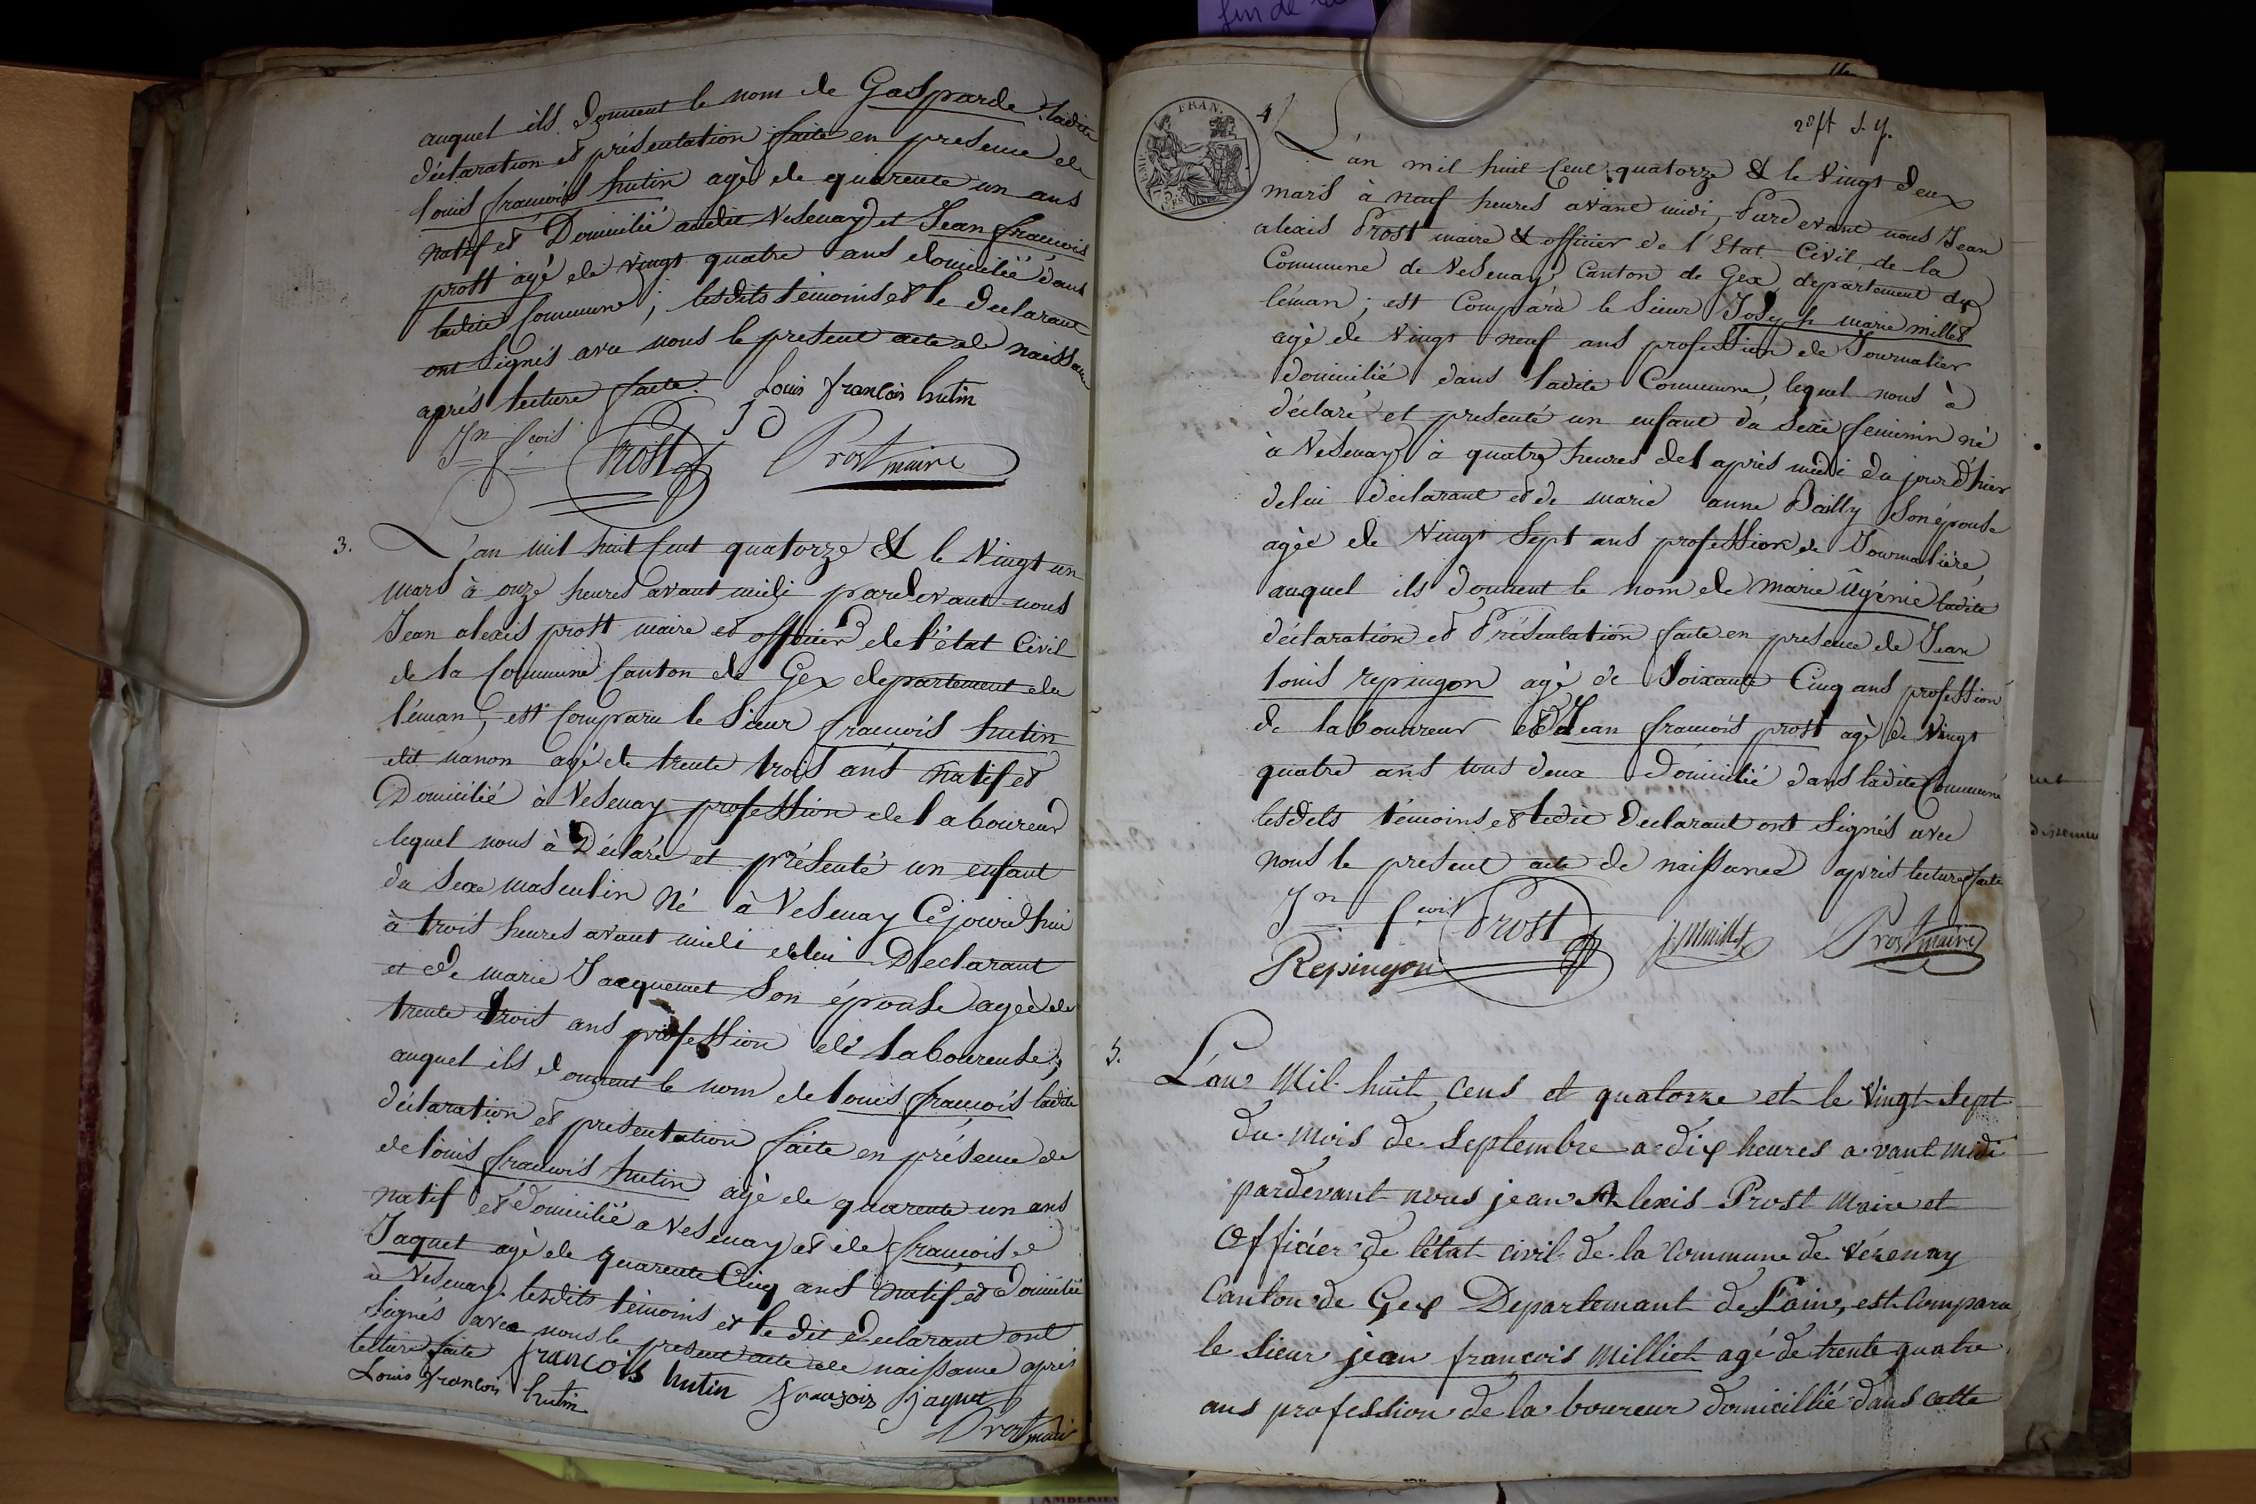 fin de la
auquel ils donnent le nom de Gasparde, ladite
déclaration et présentation faite en presence de
louis françois hutin agè de quarente un ans
natif et Domicilié audit Vesenay et Jean françois
prost agé de vingt quatre ans domicilié dans
ladite Commune ; lesdits témoins et le declarant
ont signés avec nous le present acte de naissance
après lecture faite. Louis françois hutin
Jn fcois Prost Prost maire
3. L'an mil huit Cent quatorze & le Vingt un
mars à onze heures avant midi pardevant nous
Jean alexis prost maire et officier de l'état Civil
de la Commune Canton de Gex departement du
léman, est Comparu le Sieur françois hutin
dit nanon agé de trente trois ans natif et
Domicilié à Vesenay profession de laboureur
lequel nous à Déclaré et présenté un enfant
du Sexe masculin Né à Vesenay Cejourd'hui
à trois heures avant midi de lui Declarant
et de marie Jacquemet Son épouse agèe de
trente trois ans profession de laboureuse,
auquel ils donnent le nom de louis françois ladite
déclaration et presentation faite en présence de
de louis françois hutin agè de quarente un ans
natif et domicilié a Vesenay et de françois
Jaquet agè de quarente Cinq ans natif et Domicilié
à Vesenay. lesdits témoins et le dit declarant ont
signés avec nous le present acte de naissance après
lecture faite françois hutin françois jaquet
Louis françois hutin
Prost maire
FRAN.
75 C.
4 L'an mil huit Cent quatorze & le Vingt deux
mars à neuf heures avant midi, Pardevant nous Jean
alexis Prost maire & officier de l'Etat Civil de la
Commune de Vesenay Canton de Gex, département du
léman ; est Comparu le Sieur Joseph marie millet
agè de Vingt neuf ans profession de Journalier
domicilié dans ladite Commune, lequel nous à
déclaré et presenté un enfant du Sexe feminin né
à Vesenay à quatre heures del après midi du jour d'hier
de lui déclarant et de marie anne Bailly Son épouse
agèe de Vingt Sept ans profession de Journaliére,
auquel ils donnent le nom de marie ûgénie ladite
déclaration et Présentation faite en presence de Jean
louis repingon agè de Soixante Cinq ans profession
de laboureur et Jean françois prost agè de Vingt
quatre ans tous deux domicilié dans ladite Commune
lesdits témoins et ledit Declarant ont signés avec
nous le present acte de naissance après lecture faite
Jn fcois Prost J. Millet Prost maire
Repingon
5. L'an Mil huit cens et quatorze et le Vingt Sept
du mois de Septembre a dix heures avant midi
pardevant nous jean Alexis Prost Maire et
officier de létat civil de la Commune de Vézenay
Canton de Gex Departemant de l'ain, est Comparu
le Sieur jean françois Milliet agé de trente quatre
ans profession de la boureur domicillié dans cette